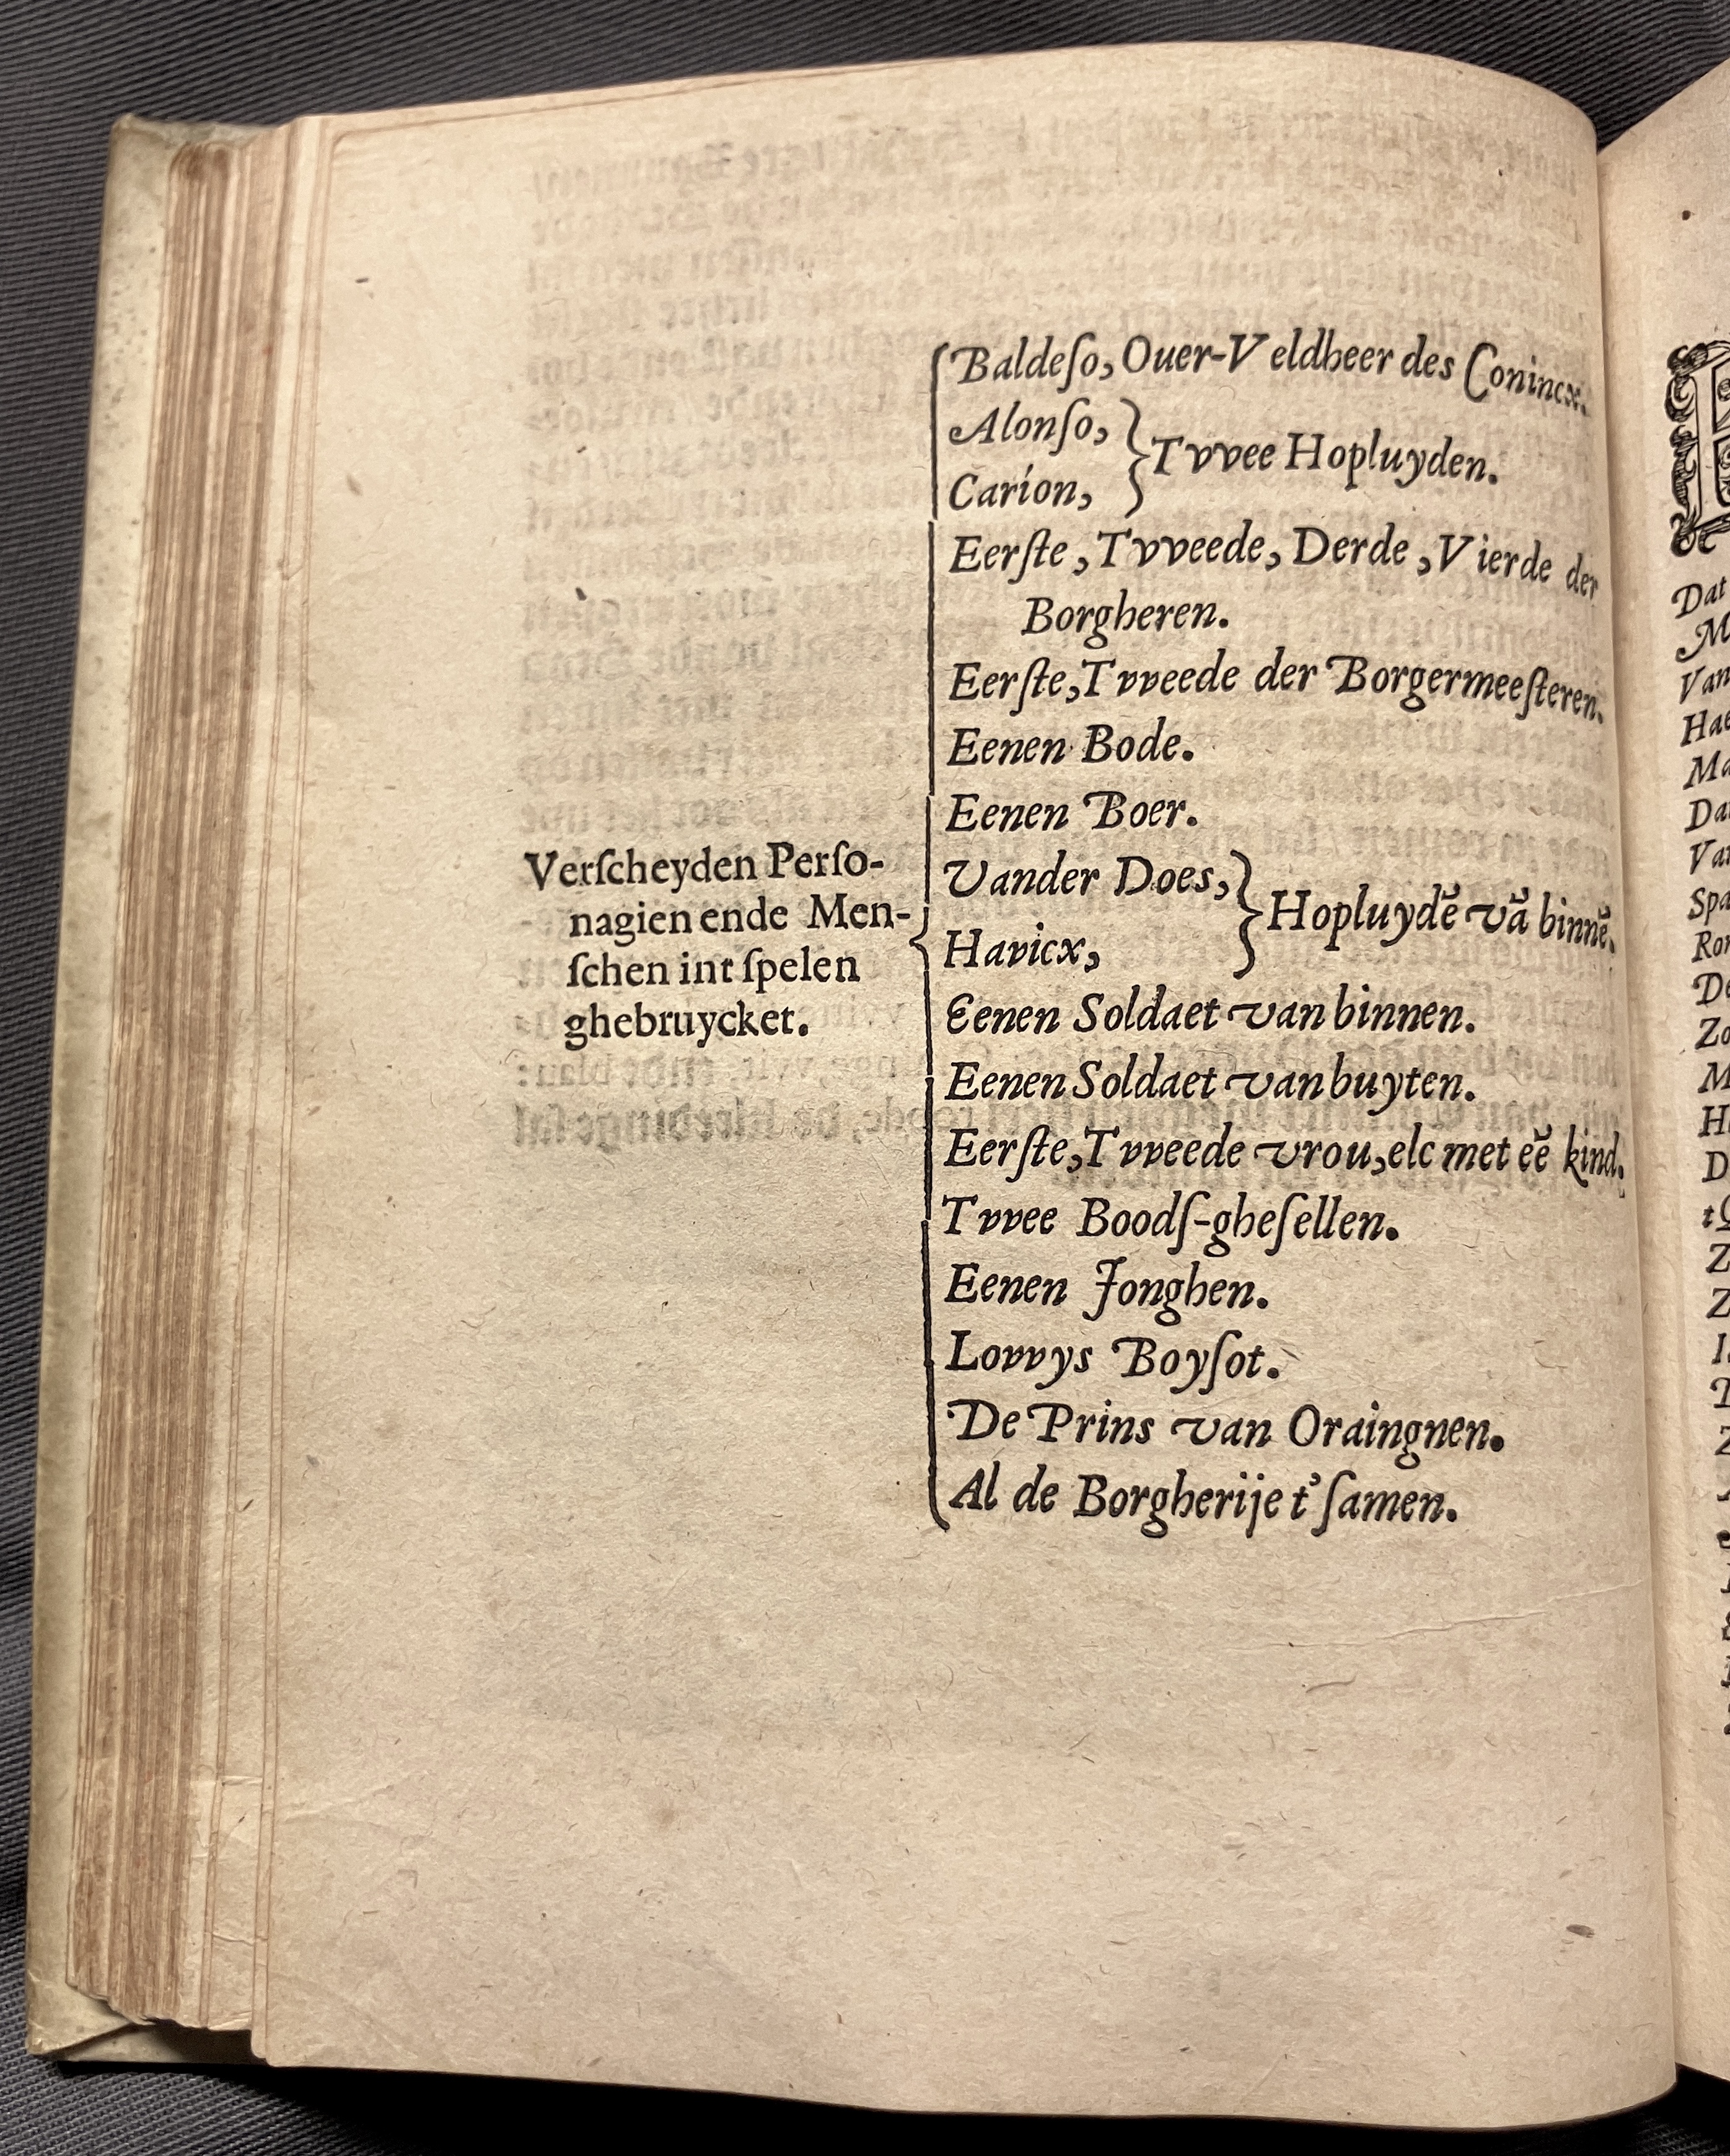 Baldeſo, Ouer-Veldheer des Conincx.
Alonſo,
Carion,
Tvvee Hopluyden.
Eerſte, Tvveede, Derde, Vierde der
Borgheren.
Eerſte, Tvveede der Borgermeeſteren.
Eenen Bode.
Eenen Boer.
Verſcheyden Perſo-
nagien ende Men-
ſchen int ſpelen
ghebruycket.
Vander Does,
Havicx,
Hopluydē vā binnē.
Eenen Soldaet van binnen.
Eenen Soldaet van buyten.
Eerſte, Tvveede vrou, elc met eē kind.
Tvvee Boodſ-gheſellen.
Eenen Jonghen.
Lovvys Boyſot.
De Prins van Oraingnen.
Al de Borgherije t'ſamen.
Dat
Van